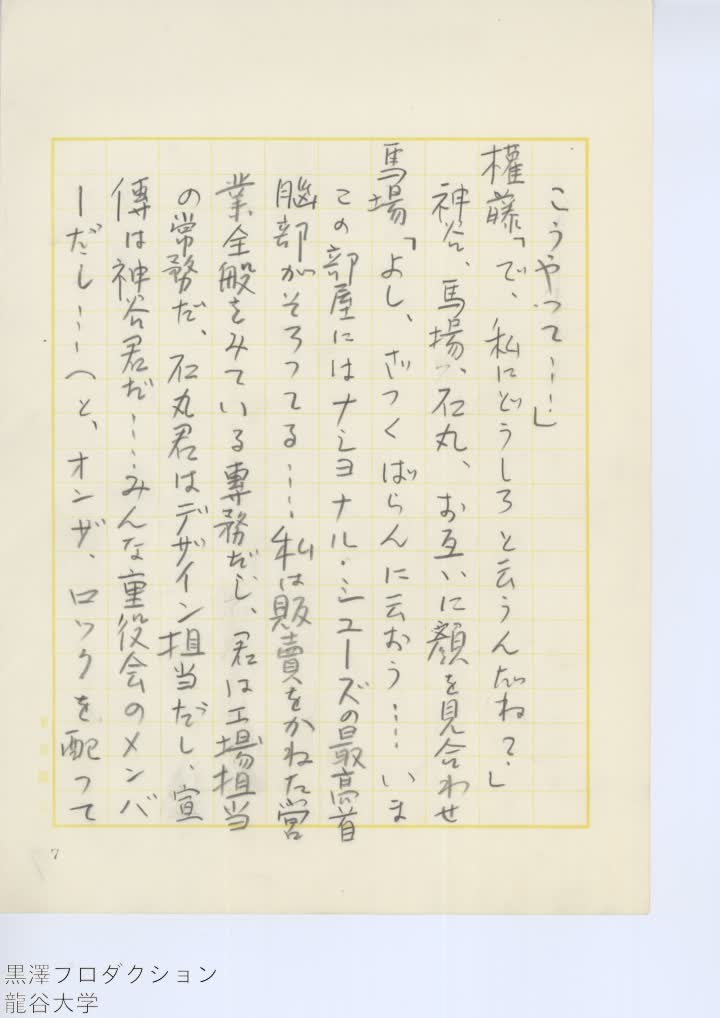 こうやって……」
權藤「で、私にどうしろと云うんだね？」
神谷、馬場、石丸、お互いに顔を見合わせ
馬場「よし、ざっくばらんに云おう……いま
この部屋にはナショナル・シューズの最高首
脳部がそろってる……私は販賣をかねた営
業全般をみている専務だし、君は工場担当
の常務だ、石丸君はデザイン担当だし、宣
傳は神谷君だ……みんな重役会のメンバ
ーだし……へと、オンザ、ロックを配って
7
黒澤プロダクション
龍谷大学